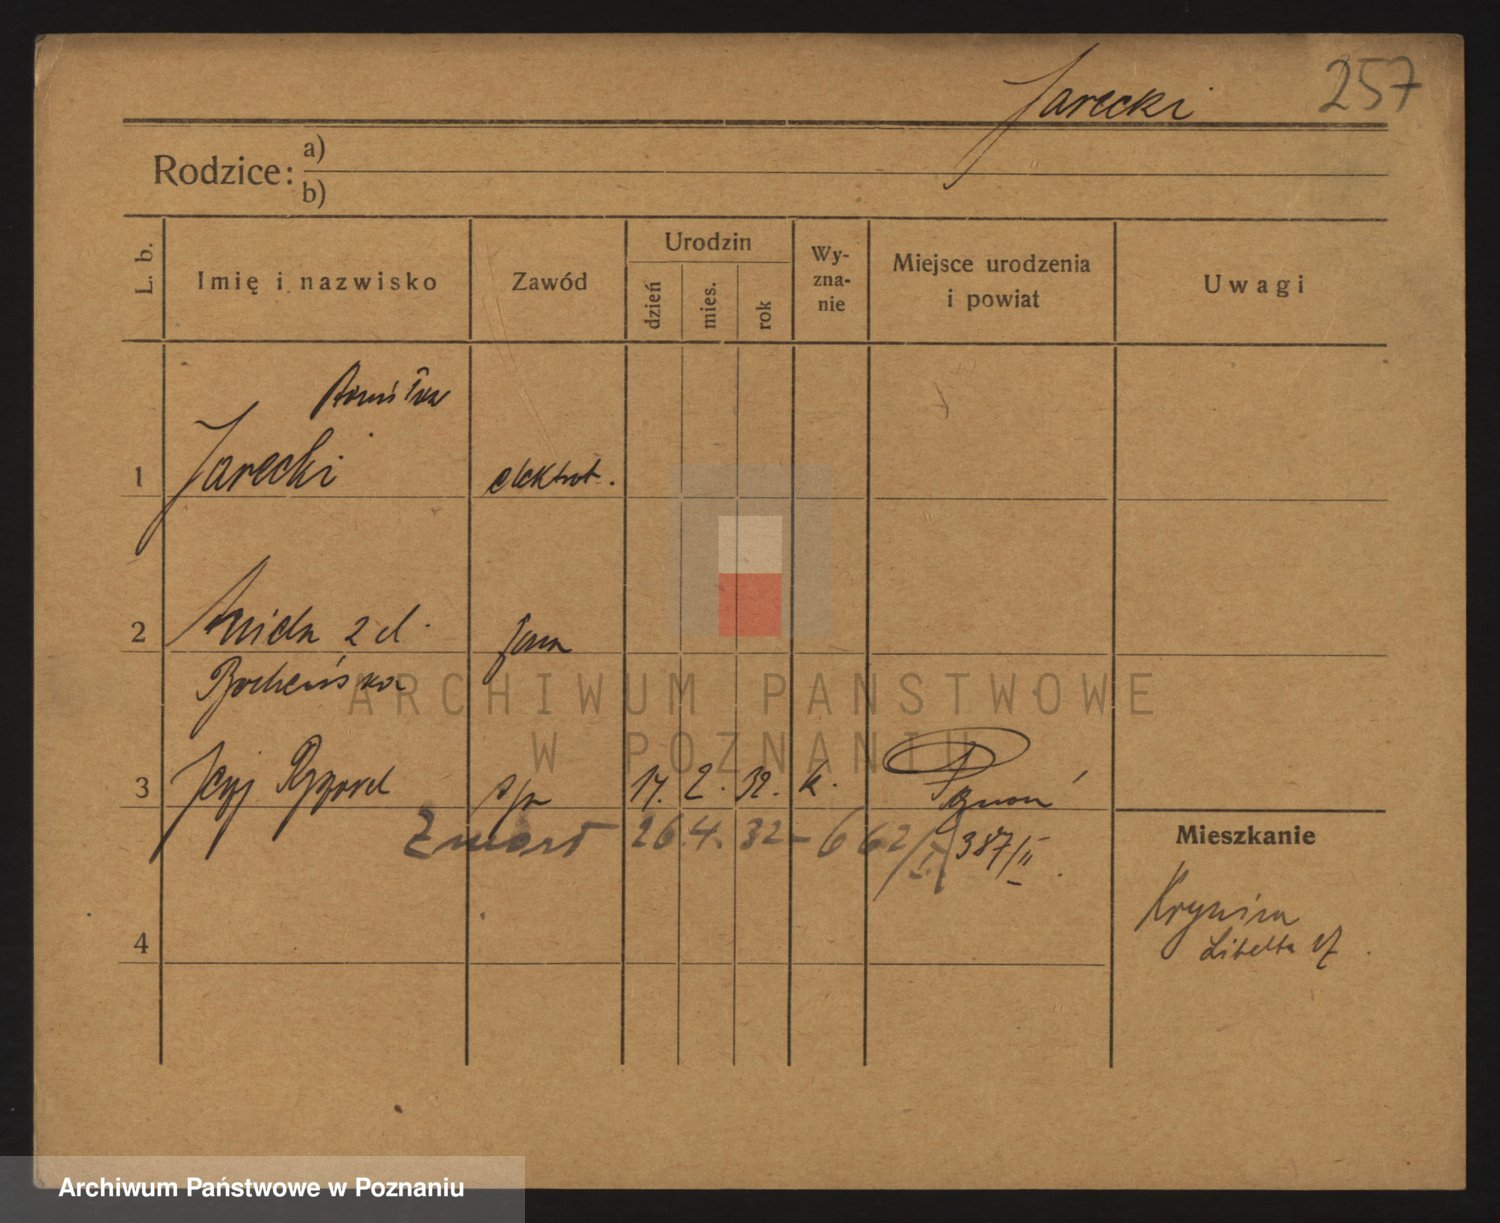 Jarecki 257
Rodzice: a)
b)
L. b. Imię i nazwisko Zawód Urodzin dzień mies. rok Wy-
zna-
nie Miejsce urodzenia
i powiat Uwagi
1 Jarecki elektrot.
2 2 d. żona
Bocheńska
ARCHIWUM PAŃSTWOWE
W POZNANIU
3 Jerzy Ryszard syn 17. 2. 32. k. Poznań
Zmarł 26.4. 32 - 662/II 387/II
Mieszkanie
4 Krynica
Libelta
Archiwum Państwowe w Poznaniu